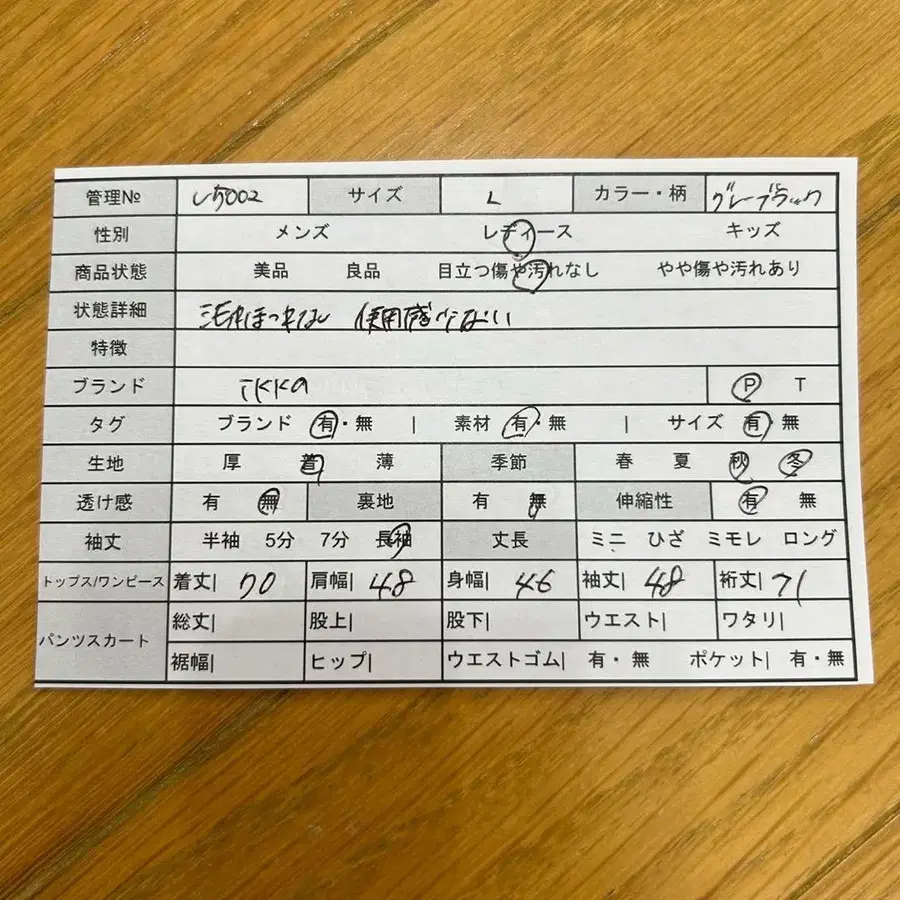 管理№ サイズ L カラー・柄 グレーブラック
性別 メンズ レディース キッズ
商品状態 美品 良品 目立つ傷や汚れなし やや傷や汚れあり
状態詳細 汚れほつれなし 使用感少ない
特徴
ブランド ikka P T
タグ ブランド 有・無 | 素材 有・無 | サイズ 有・無
生地 厚 普 薄 季節 春 夏 秋 冬
透け感 有 無 裏地 有 無 伸縮性 有 無
袖丈 半袖 5分 7分 長袖 丈長 ミニ ひざ ミモレ ロング
トップス/ワンピース 着丈| 70 肩幅| 48 身幅| 46 袖丈| 48 裄丈| 71
パンツスカート 総丈| 股上| 股下| ウエスト| ワタリ|
裾幅| ヒップ| ウエストゴム| 有・無 ポケット| 有・無